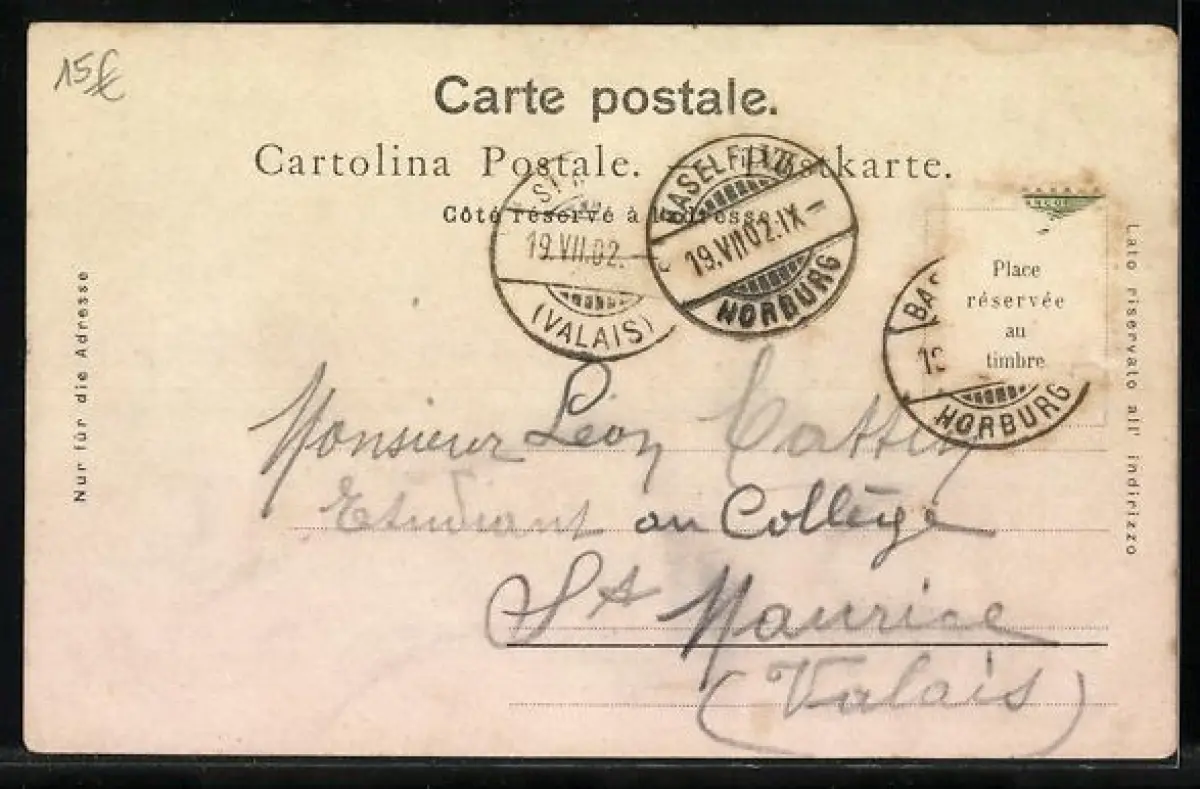 15€
Carte postale.
Cartolina Postale. — Postkarte.
Côté réservé à l'adresse
Nur für die Adresse
Lato riservato all' indirizzo
Place
réservée
au
timbre
19.VII.02.
(VALAIS)
19.VII.02.IX
HORBURG
BAS
19
HORBURG
Monsieur Léon
Etudiant au Collège
St Maurice
(Valais)